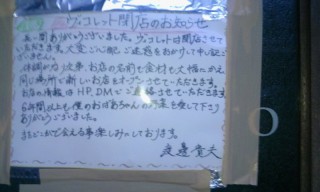 ヴィコレット閉店のお知らせ
長い間ありがとうございました。ヴィコレットは閉店させて
いただきます。大変ご心配、ご迷惑をおかけして申し訳ご
ざいません。
体調が治り次第、お店の名前も食材も大幅にかえ
同じ場所で新しいお店をオープンさせていただきます。
お店の情報は HP、DMでご連絡させていただきます
6年間以上も僕のおばあちゃんの野菜を愛して下さり
ありがとうございました。
またどこかで会える事楽しみにしております。
渡邊